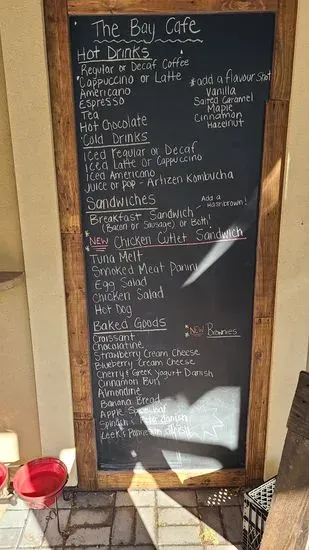 The Bay Cafe
Hot Drinks
Regular or Decaf Coffee
Cappuccino or Latte
Americano
Espresso
Tea
Hot Chocolate
*add a flavour shot
Vanilla
Salted Caramel
Maple
Cinnamon
Hazelnut
Cold Drinks
Iced Regular or Decaf
Iced Latte or Cappuccino
Iced Americano
Juice or Pop - Artizen Kombucha
Sandwiches
Breakfast Sandwich - Add a Hashbrown!
(Bacon or Sausage) or Both!
*NEW Chicken Cutlet Sandwich
Tuna Melt
Smoked Meat Panini
Egg Salad
Chicken Salad
Hot Dog
Baked Goods
*NEW Brownies
Croissant
Chocolatine
Strawberry Cream Cheese
Blueberry Cream Cheese
Cherry & Greek Yogurt Danish
Cinnamon Bun
Almondine
Banana Bread
Apple
Spinach & Feta Danish
Leek &